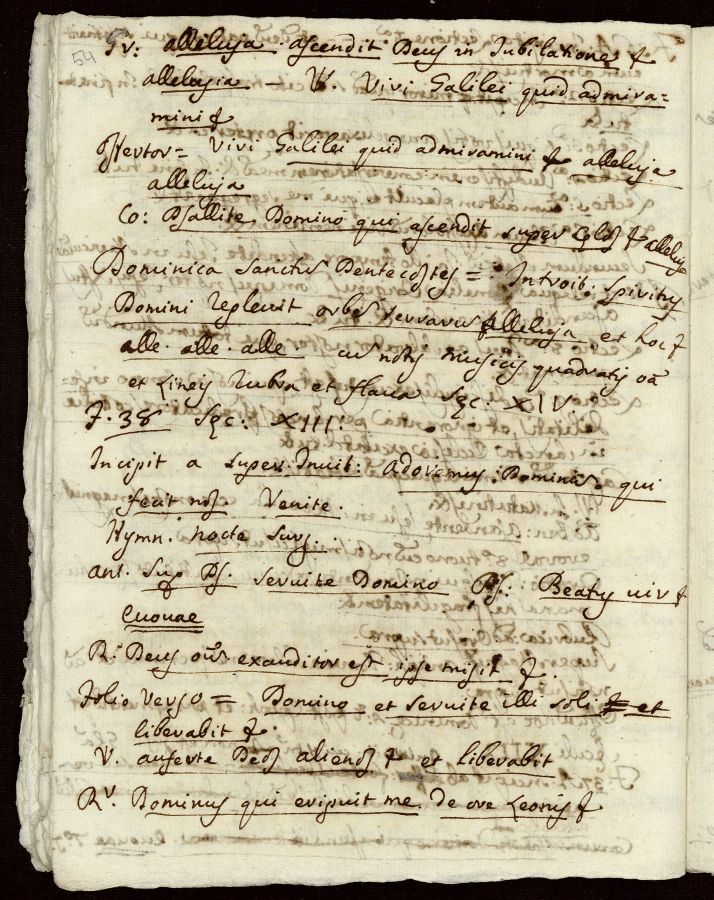 54
Gr: alleluja ascendit Deus in Jubilatione &
allelusia — V. Vivi Galilei quid admira=
mini &
Offertor= Viri Galilei quid admiramini & alleluja
alleluja
Co: Psallite Domino qui ascendit super Celos & alleluja
Dominica Sanctus Pentecostes = Introit: Spiritus
Domini replevit orbem terrarum alleluja et hoc &
alle. alle. alle cum notis musicis quadratis
et Lineis rubra et flava Sęc: XIV
F. 38 Sęc: XIII:
Incipit a super Invit: adoremus Dominum qui
fecit nos Venite.
Hymn. nocte Surg.
ant. Sup Ps. Servite Domino Ps: Beatus vir &
Euouae
R. Deus omnium exauditor est ipse misit &.
Folio verso = Domino et servite illi soli et
liberabit &.
V. auferte Deos alienos & et liberabit
R. Dominus qui eripuit me de ore Leonis &